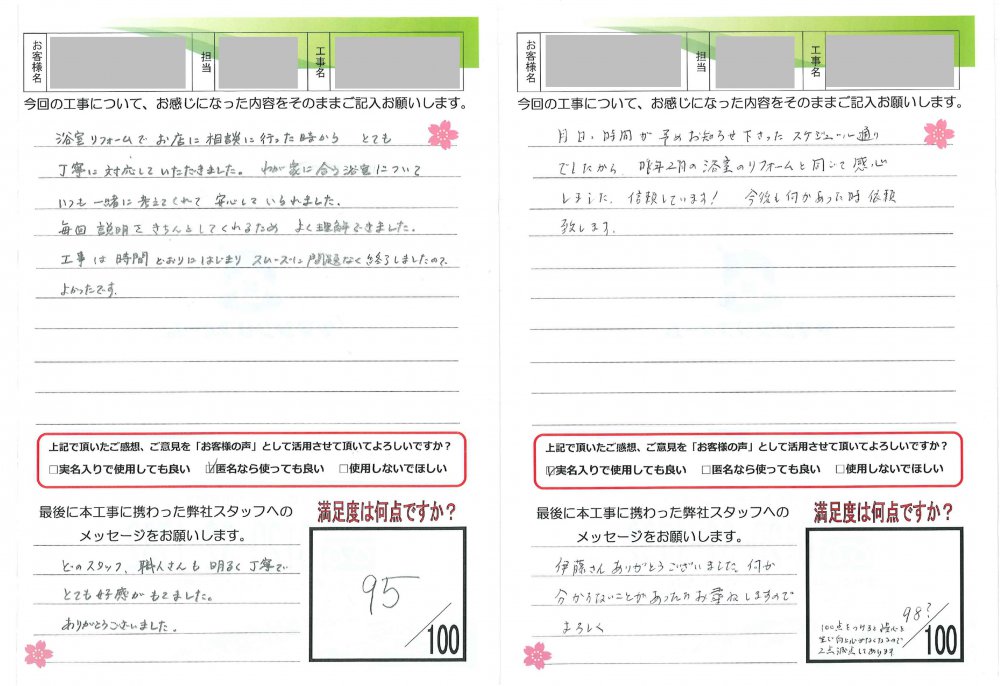 お客様名
担当
工事名
今回の工事について、お感じになった内容をそのままご記入お願いします。
浴室リフォームでお店に相談に行った時から とても
丁寧に対応していただきました。 わが家に合う浴室について
いつも一緒に考えてくれて 安心していられました。
毎回 説明をきちんとしてくれるため よく理解できました。
工事は時間どおりにはじまり スムーズに問題なく終了しましたので
よかったです。
上記で頂いたご感想、ご意見を「お客様の声」として活用させて頂いてよろしいですか？
□実名入りで使用しても良い ☑匿名なら使っても良い □使用しないでほしい
最後に本工事に携わった弊社スタッフへの
メッセージをお願いします。
どのスタッフ、職人さんも 明るく丁寧で
とても好感がもてました。
ありがとうございました。
満足度は何点ですか？
95
/100
お客様名
担当
工事名
今回の工事について、お感じになった内容をそのままご記入お願いします。
月日・時間が予めお知らせ下さった スケジュール通り
でしたから 昨年2月の浴室のリフォームと同じで感心
しました。信頼しています！ 今後も何かあった時依頼
致します。
上記で頂いたご感想、ご意見を「お客様の声」として活用させて頂いてよろしいですか？
☑実名入りで使用しても良い □匿名なら使っても良い □使用しないでほしい
最後に本工事に携わった弊社スタッフへの
メッセージをお願いします。
伊藤さんありがとうございました。何か
分からないことがあったらお尋ねしますので
よろしく
満足度は何点ですか？
98?
100点をつけると慢心を
生じ向上心がなくなるので
2点減点してあります
/100